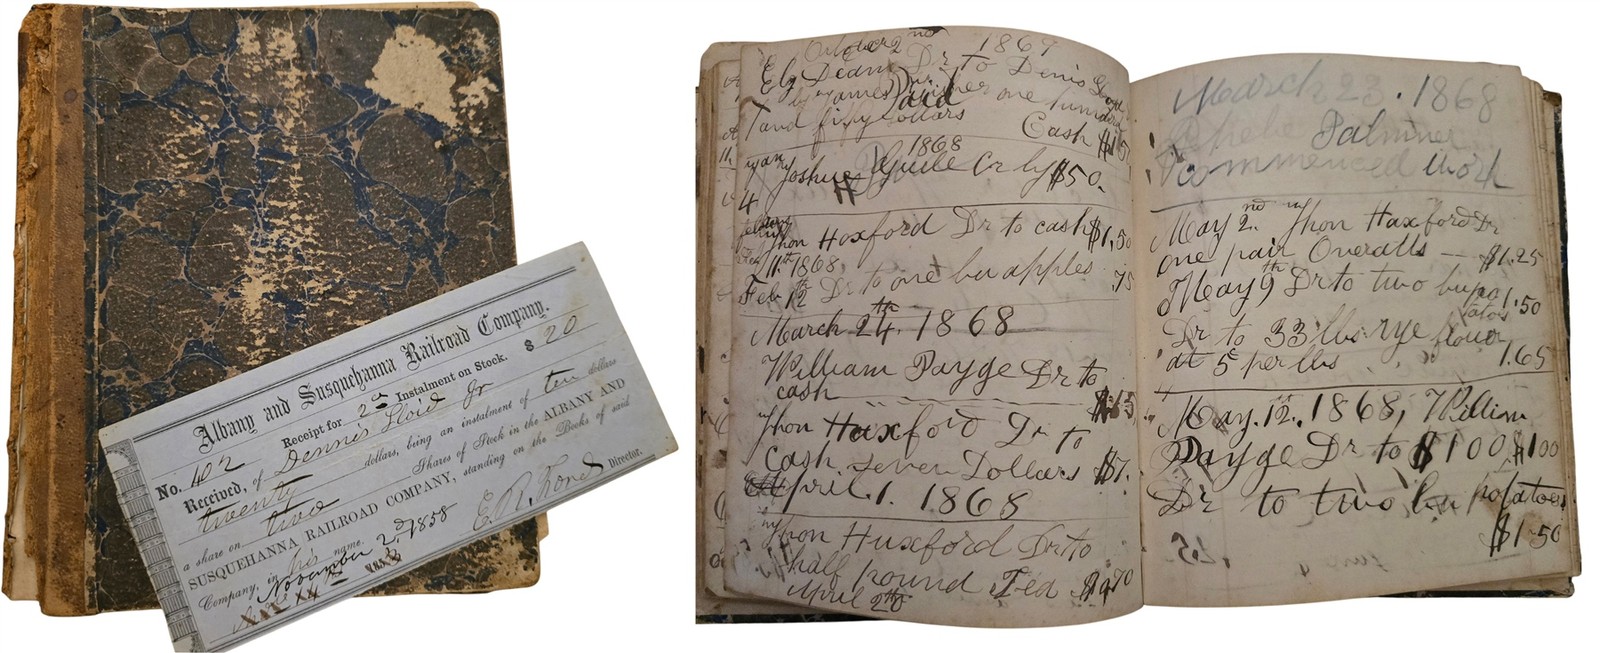 Albany and Susquehanna Railroad Company.
Receipt for 2nd Instalment on Stock. $ 20
No. 402
Received, of Dennis Sloid Jr
twenty dollars, being an instalment of ten dollars
a share on two Shares of Stock in the ALBANY AND
SUSQUEHANNA RAILROAD COMPANY, standing on the Books of said
Company, in his name.
November 2d 1858
E. R. Ford Director.
October 2nd 1869
Ely Deam Dr to Denis
by James one hundred
and fifty dollars Paid Cash
1868
4 Joshua Cr by $50.
Jhon Hoxford Dr to cash $1.50
11th 1868
Feb 12th Dr to one bu apples .75
March 24th. 1868
William Payge Dr to
cash
Jhon Haxford Dr to
Cash seven Dollars $7.
April. 1. 1868
Jhon Huxford Dr to
half pound Tea
April
March 23. 1868
Palminer
commenced work
May 2nd Jhon Haxford Dr
one pair Overalls — $1.25
May 9th Dr to two bu patatos 1.50
Dr to 33 lbs rye flouer
at 5 per lbs 1.65
May. 12.. 1868, William
Payge Dr to $100 $100
Dr to two bu potatoes
$1.50